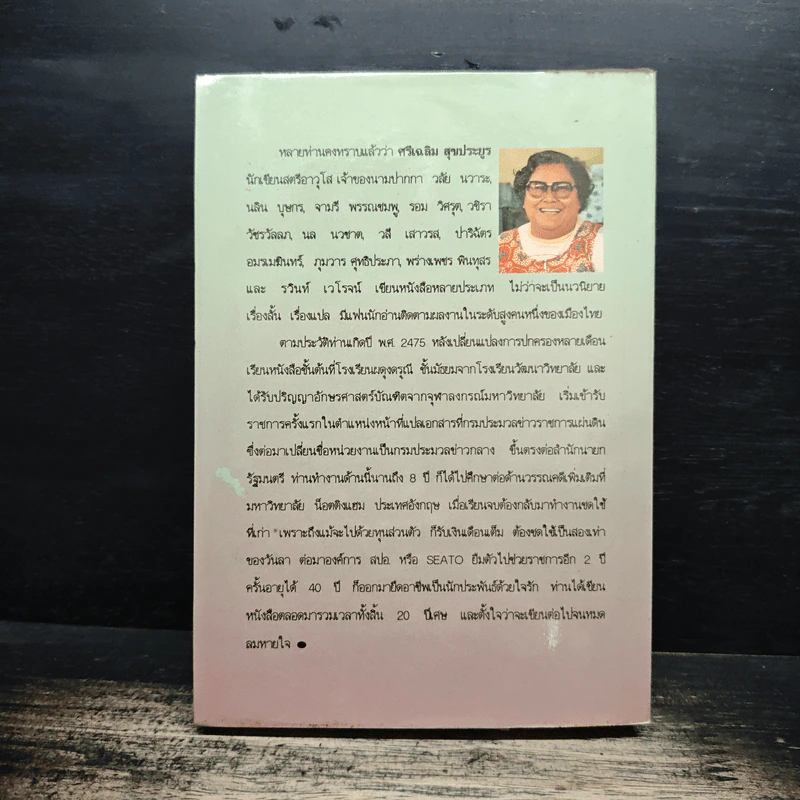 หลายท่านคงทราบแล้วว่า ศรีเฉลิม สุขประยูร
นักเขียนสตรีอาวุโส เจ้าของนามปากกา วลัย นวาระ,
นลิน บุษกร, จามรี พรรณชมพู, รอม วิศรุต, วชิรา
วัชรวัลลภ, นล นวชาต, วลี เสาวรส, ปาริฉัตร
อมรเมฆินทร์, ภุมวาร ศุทธิประภา, พร่างเพชร พินทุสร
และ รวินท์ เวโรจน์ เขียนหนังสือหลายประเภท ไม่ว่าจะเป็นนวนิยาย
เรื่องสั้น เรื่องแปล มีแฟนนักอ่านติดตามผลงานในระดับสูงคนหนึ่งของเมืองไทย
ตามประวัติท่านเกิดปี พ.ศ. 2475 หลังเปลี่ยนแปลงการปกครองหลายเดือน
เรียนหนังสือชั้นต้นที่โรงเรียนผดุงดรุณี ชั้นมัธยมจากโรงเรียนวัฒนาวิทยาลัย และ
ได้รับปริญญาอักษรศาสตร์บัณฑิตจากจุฬาลงกรณ์มหาวิทยาลัย เริ่มเข้ารับ
ราชการครั้งแรกในตำแหน่งหน้าที่แปลเอกสารที่กรมประมวลข่าวราชการแผ่นดิน
ซึ่งต่อมาเปลี่ยนชื่อหน่วยงานเป็นกรมประมวลข่าวกลาง ขึ้นตรงต่อสำนักนายก
รัฐมนตรี ท่านทำงานด้านนี้นานถึง 8 ปี ก็ได้ไปศึกษาต่อด้านวรรณคดีเพิ่มเติมที่
มหาวิทยาลัย น็อตติงแฮม ประเทศอังกฤษ เมื่อเรียนจบต้องกลับมาทำงานชดใช้
ที่เก่า "เพราะถึงแม้จะไปด้วยทุนส่วนตัว ก็รับเงินเดือนเต็ม ต้องชดใช้เป็นสองเท่า
ของวันลา ต่อมาองค์การ สปอ. หรือ SEATO ยืมตัวไปช่วยราชการอีก 2 ปี
ครั้นอายุได้ 40 ปี ก็ออกมายึดอาชีพเป็นนักประพันธ์ด้วยใจรัก ท่านได้เขียน
หนังสือตลอดมารวมเวลาทั้งสิ้น 20 ปีเศษ และตั้งใจว่าจะเขียนต่อไปจนหมด
ลมหายใจ ●